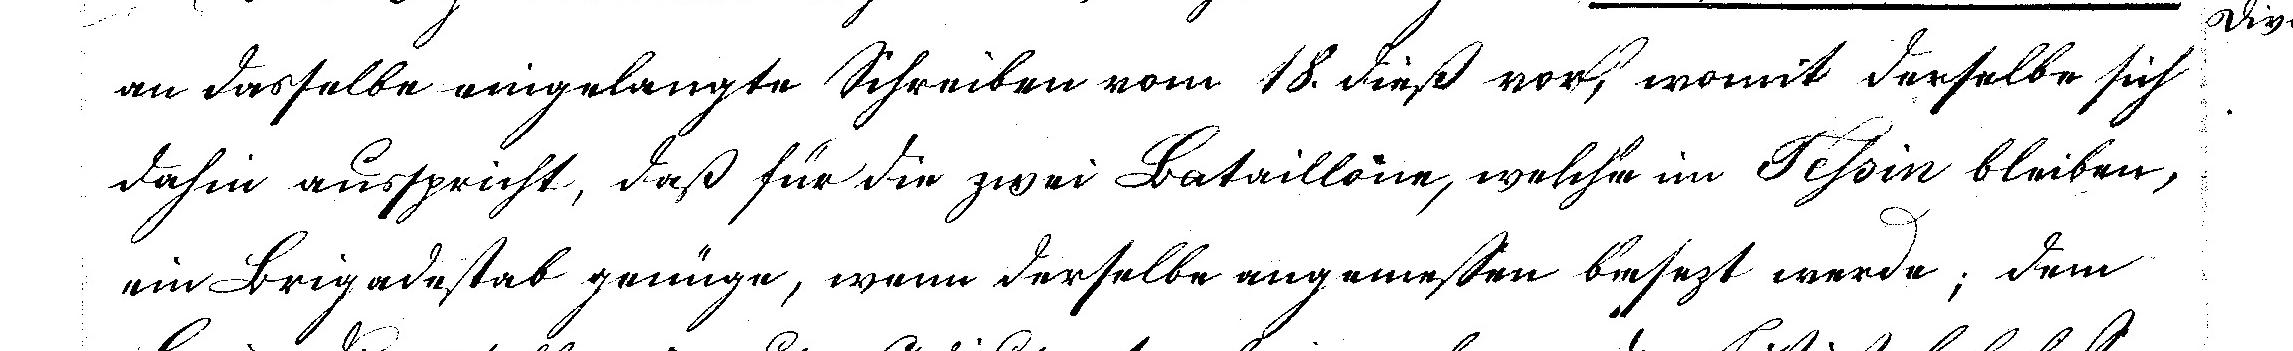 an dasselbe eingelangte Schreiben vom 18. dieß vor, womit derselbe sich
dahin ausspricht, daß für die zwei Bataillone, welche im Tessin bleiben,
ein Brigadestab genüge, wenn derselbe angemessen besezt werde; dem